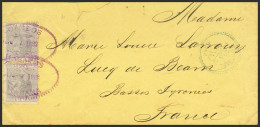 Madame
Marie Louise Larrouy
Lucq de Bearn
Basses Pyrenees
France